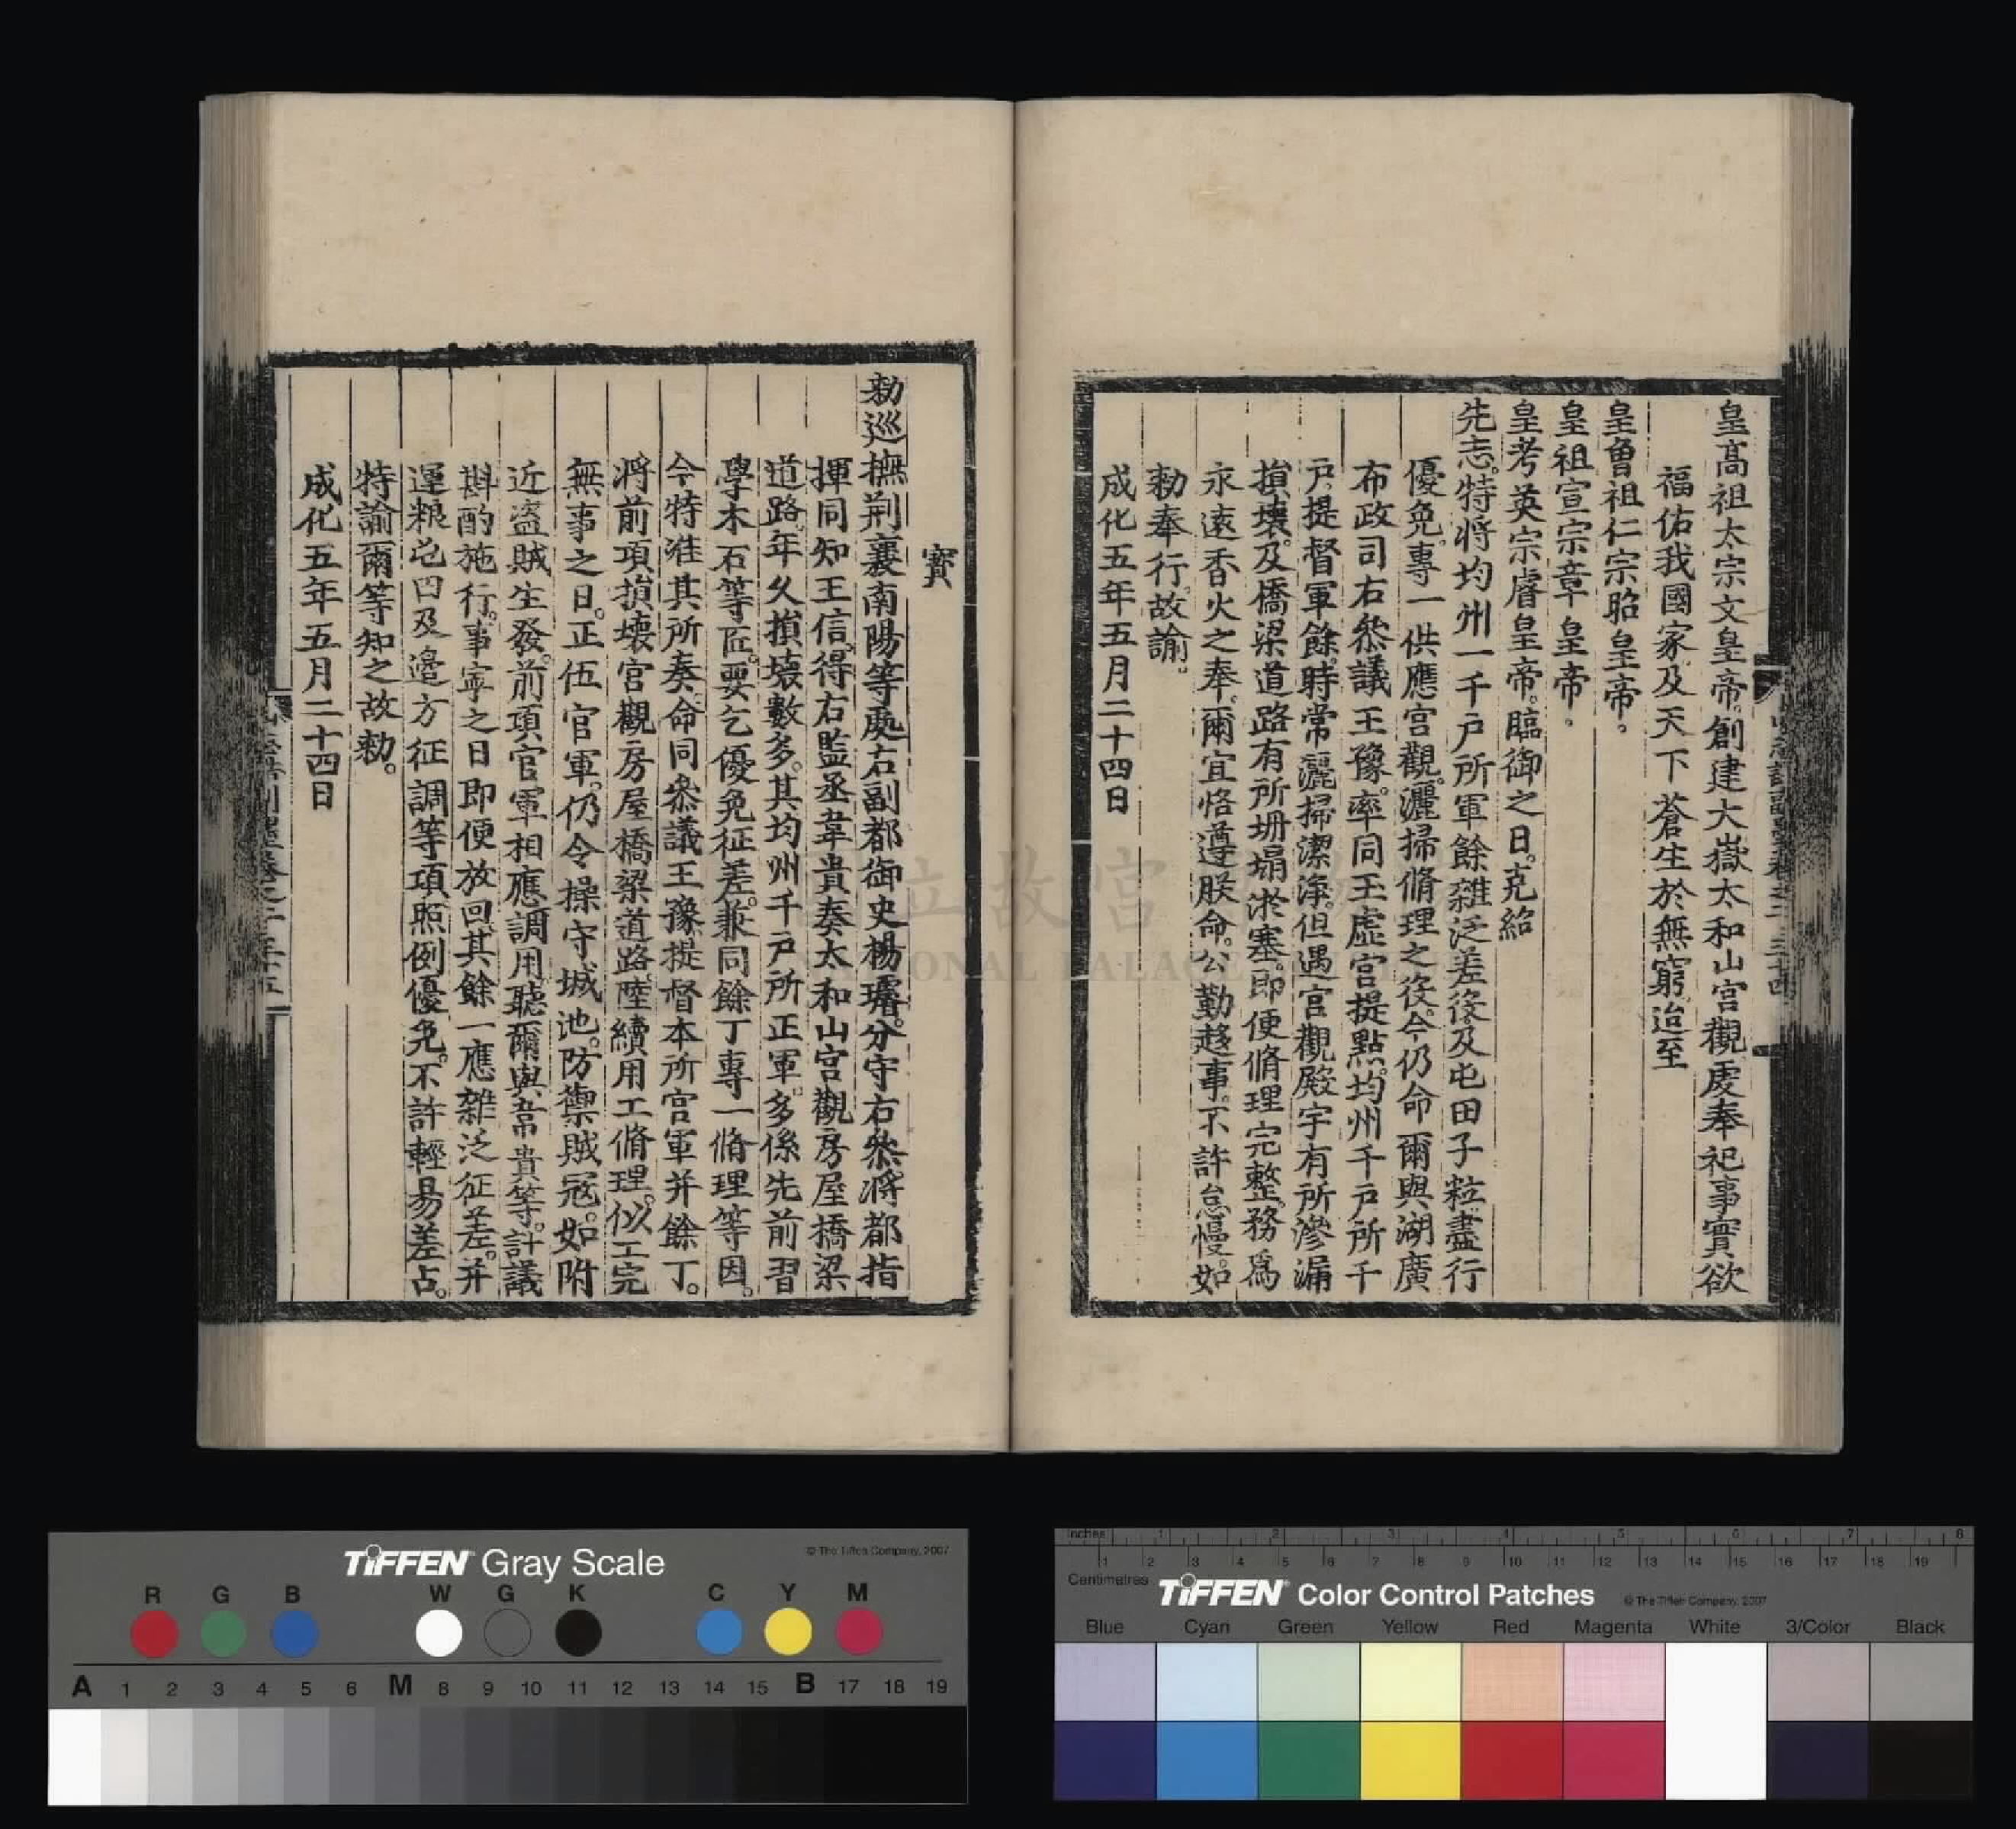 皇高祖太宗文皇帝。創建大嶽太和山宮觀處奉祀事實欲
福佑我國家及天下蒼生於無窮迨至
皇曾祖仁宗昭皇帝。
皇祖宣宗章皇帝。
皇考英宗睿皇帝。臨御之日。克紹
先志。特將均州一千戶所軍餘雜泛差役及屯田子粒盡行
優免。專一供應宮觀。灑掃脩理之役。今仍命爾與湖廣
布政司右叅議王豫。率同玉虛宮提點。均州千戶所千
戶。提督軍餘。時常灑掃潔淨。但遇宮觀殿宇有所滲漏
損壞。及橋梁道路有所坍塌淤塞。即便脩理完整。務爲
永遠香火之奉。爾宜恪遵朕命。公勤趨事。不許怠慢。如
勑奉行。故諭。
成化五年五月二十四日
寶
勑巡撫荆襄南陽等處右副都御史楊璿。分守右叅將都指
揮同知王信。得右監丞韋貴奏太和山宮觀房屋橋梁
道路。年久損壞數多。其均州千戶所正軍。多係先前習
學木石等匠。要乞優免征差。兼同餘丁專一脩理等因。
今特准其所奏。命同叅議王豫提督本所官軍并餘丁。
將前項損壞宮觀房屋橋梁道路。陸續用工脩理。似工完
無事之日。正伍官軍。仍令操守城池。防禦賊寇。如附
近盜賊生發。前項官軍相應調用。聽爾與韋貴等。計議
斟酌施行。事寧之日即便放回。其餘一應雜泛征差。并
運粮屯田及邊方征調等項照例優免。不許輕易差占。
特諭爾等知之故勑。
成化五年五月二十四日
TIFFEN Gray Scale
© The Tiffen Company, 2007
R G B W G K C Y M
A 1 2 3 4 5 6 M 8 9 10 11 12 13 14 15 B 17 18 19
Inches 1 2 3 4 5 6 7 8
1 2 3 4 5 6 7 8 9 10 11 12 13 14 15 16 17 18 19
Centimetres
TIFFEN Color Control Patches
© The Tiffen Company, 2007
Blue Cyan Green Yellow Red Magenta White 3/Color Black